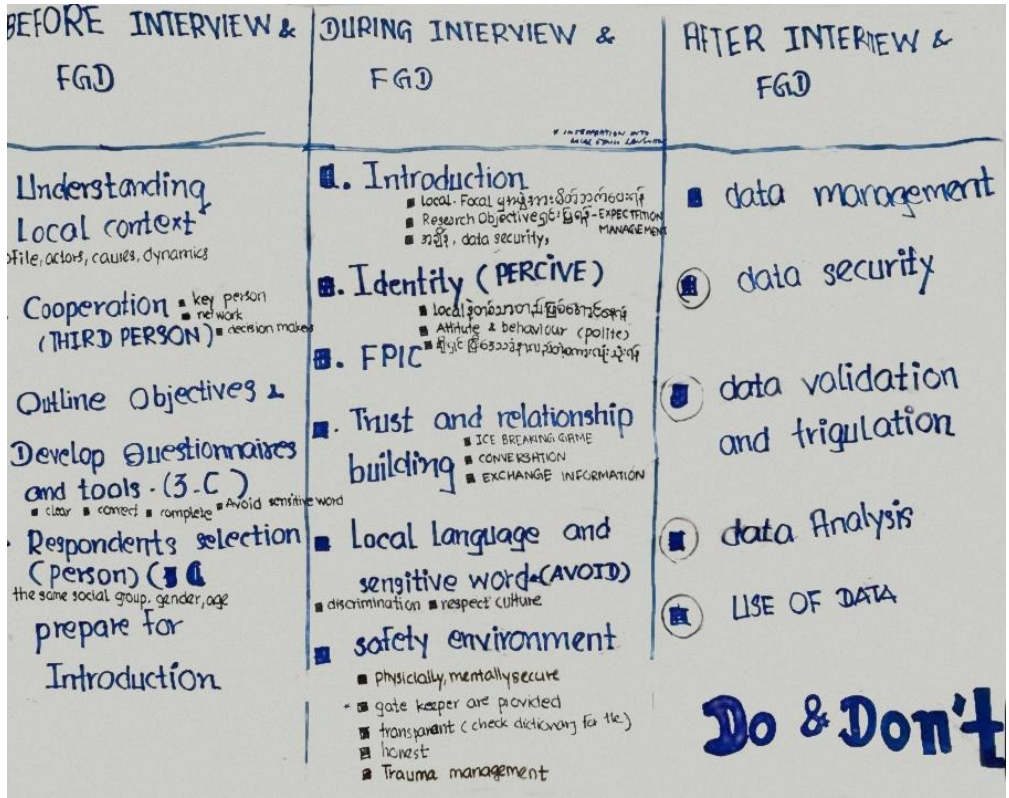 BEFORE INTERVIEW &
FGD
Understanding
Local context
file, actors, causes, dynamics
Cooperation ▪ key person
▪ network
(THIRD PERSON) ▪ decision makes
Outline Objectives &
Develop Questionnaires
and tools. (3-C)
▪ clear ▪ correct ▪ complete ▪ Avoid sensitive word
Respondents selection
(person) (
the same social group, gender, age
prepare for
Introduction
DURING INTERVIEW &
FGD
Introduction
▪ Local. Focal
▪ Research Objective - EXPECTATION
MANAGEMENT
▪ data security,
Identity (PERCIVE)
▪ local
▪ Attitute & behaviour (polite)
FPIC
Trust and relationship
building
▪ ICE BREAKING GAME
▪ CONVERSATION
▪ EXCHANGE INFORMATION
▪ Local Language and
sensitive word (AVOID)
▪ discrimination ▪ respect culture
▪ safety environment
▪ physicially, mentally secure
▪ gate keeper are provided
▪ transparant (check dictionary for the)
▪ honest
▪ Trauma management
AFTER INTERVIEW &
FGD
▪ data management
data security
data validation
and trigulation
data Analysis
USE OF DATA
Do & Don't